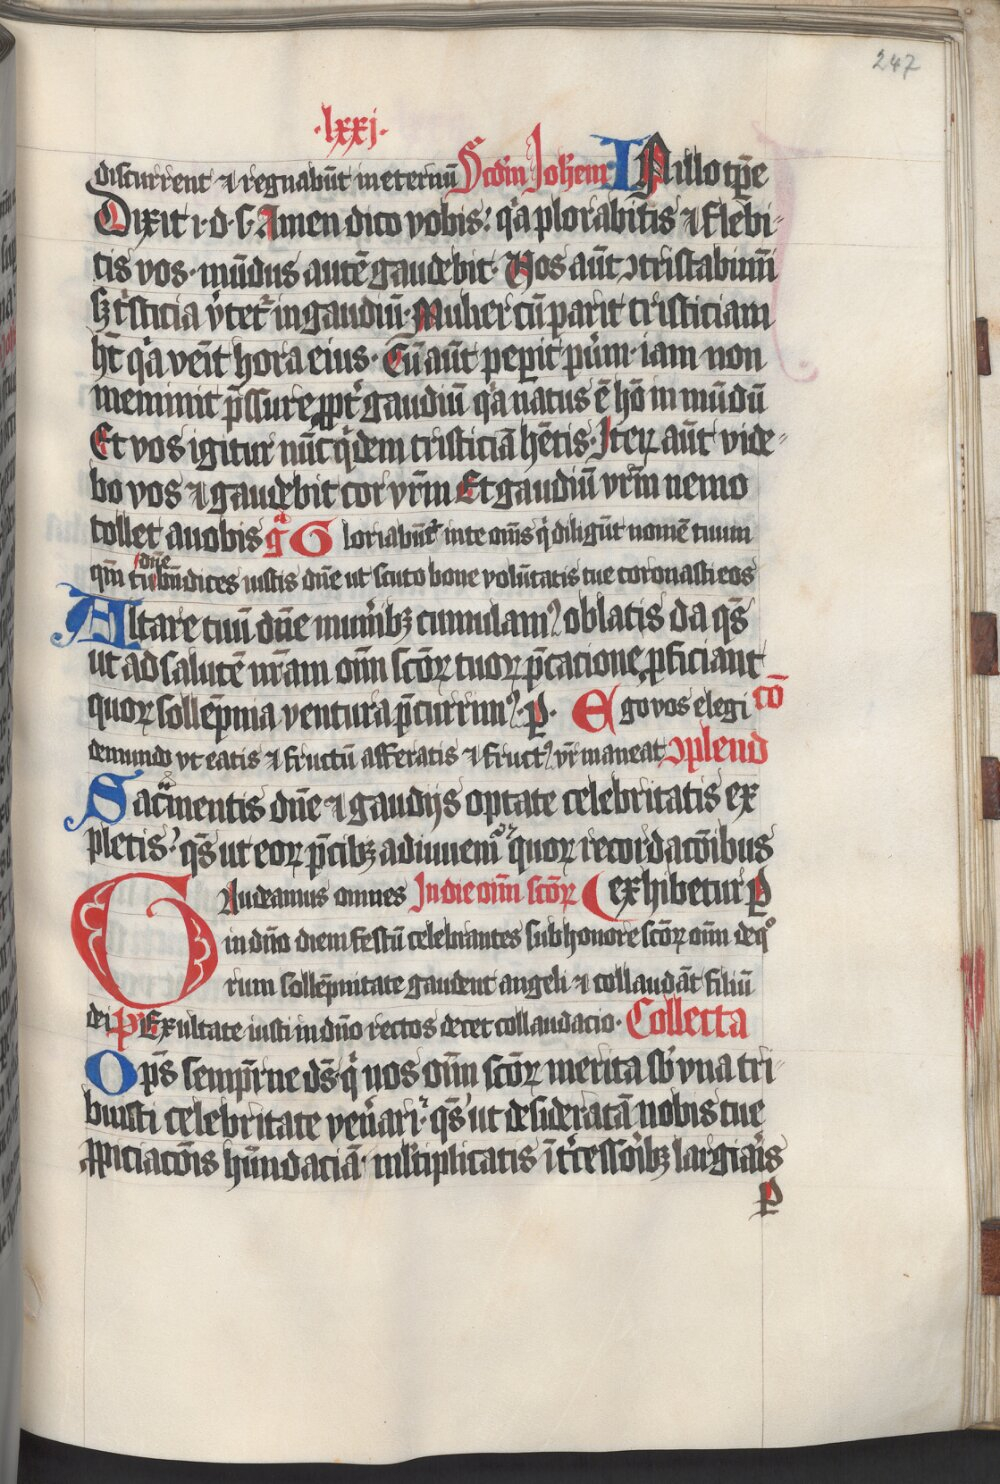 247
·lxxj·
discurrent ⁊ regnabūt in eternū Scdm Joħem IN illo tp̄e
Dixit i·d·s· Amen dico vobis: qͥa plorabitis ⁊ flebi-
tis vos· mūdus autē gaudebit· Vos aūt ↄtristabimī
sꝫ tͥsticia v̓tet᷑ in gaudiū· Mulier cū parit tristiciam
hꝫ qͥa veīt hora eius· Cū aūt pepit pūm· iam non
meminit p̄ssure ꝓpt᷑ gaudiū qͥa natus ē hō in mūdū
Et vos igitur nūc qͥdem tristiciā hētis· Iteꝝ aūt vide-
bo vos ⁊ gaudebit cor vr̄m Et gaudiū vr̄m nemo
tollet a uobis gͣ Gloriabūt᷑ in te om̄s qͥ diligūt nomē tuum
qm̄ tu dn̄e bn̄dices iustis dn̄e ut scuto bone volūtatis tue coronasti eos
Altare tuū dn̄e mun̓ibꝫ cumulamꝰ oblatis da qs̄
ut ad salutē nr̄am om̄ scōꝝ tuoꝝ p̄cacione ꝓficiant
quoꝝ sollēpnia ventura p̄currimꝰ· p· Ego vos elegi cō
de mundo vt eatis ⁊ fructū afferatis ⁊ fructꝰ vr̄ maneat ↄplend
Sacͣmentis dn̄e ⁊ gaudijs optate celebritatis ex
pletis· qs̄ ut eoꝝ p̄cibꝫ adiuuemͦꝛ quoꝝ recordacōibus
GAudeamus omnes In die om̄ scōꝝ exhibetur P
in dn̄o diem festū celebrantes sub honore scōꝝ om̄ de qͦ
rum sollēpnitate gaudent angeli ⁊ collaudāt filiū
dei Ps̄ Exultate iusti in dn̄o rectos decet collaudacio· Collecta
Op̄s semp̄rne ds̄ qͥ nos om̄ scōꝝ merita sb̓ vna tri-
buisti celebritate ven̓ari· qs̄ ut desideratā nobis tue
ꝓpiciacōis hūndaciā ml̓tiplicatis īt̓cessoͥbꝫ largiaris
P